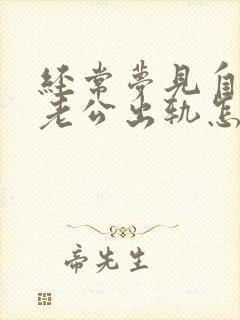 經常夢見自
老公出軌怎
帝先生